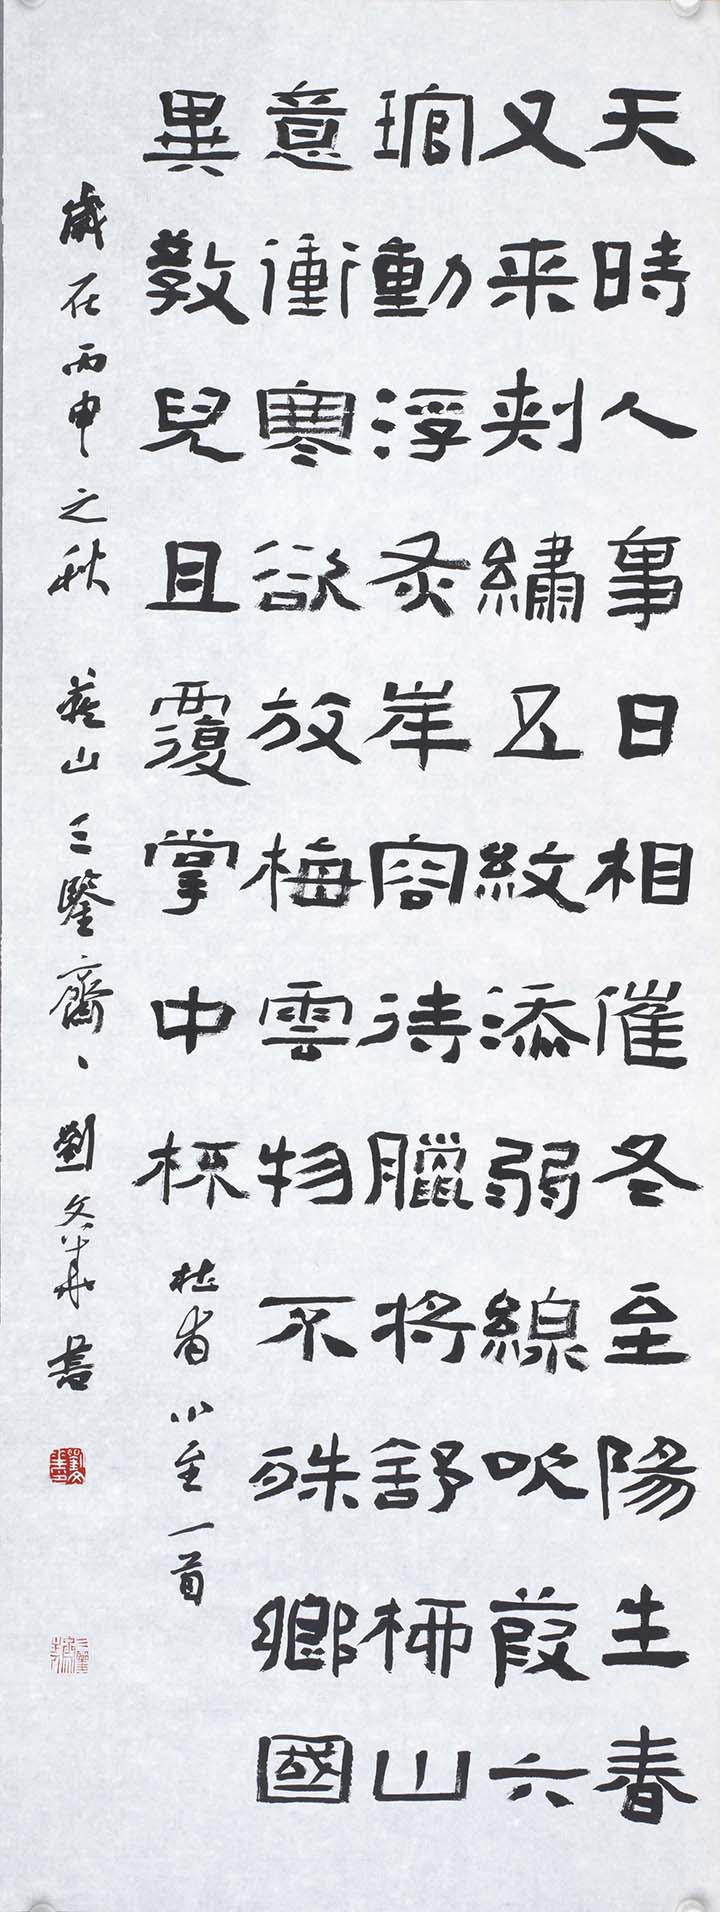 天時人事日相催冬至陽生春
又来刺繡五紋添弱線吹葭六
琯動浮灰岸容待臘将舒柳山
意衝寒欲放梅雲物不殊鄉國
異教兒且覆掌中杯
杜甫小至一首
歲在丙申之秋 山三鑒齋、劉文華書